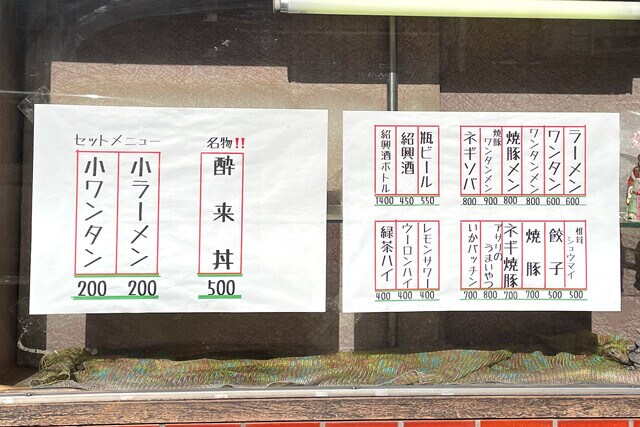 名物!!
酔来丼
500
セットメニュー
小ラーメン
200
小ワンタン
200
ラーメン
600
ワンタン
600
ワンタンメン
800
焼豚メン
800
焼豚ワンタンメン
900
ネギソバ
800
瓶ビール
550
紹興酒
450
紹興酒ボトル
1400
椎茸シュウマイ
500
餃子
500
焼豚
700
ネギ焼豚
700
アサリのうまいやつ
800
いかパッチン
700
レモンサワー
400
ウーロンハイ
400
緑茶ハイ
400